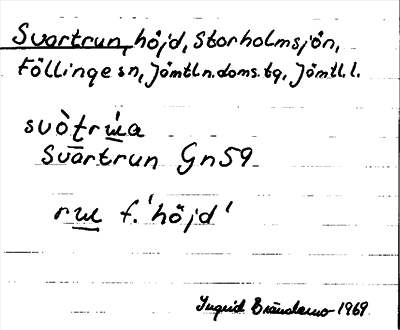 Svartrun, höjd, Storholmsjön,
Föllinge sn, Jämtl n. doms. tg, Jämtl. l.
svòtrúa
Svartrun Gn 59
ru f. 'höjd'
Ingrid Brändemo 1969